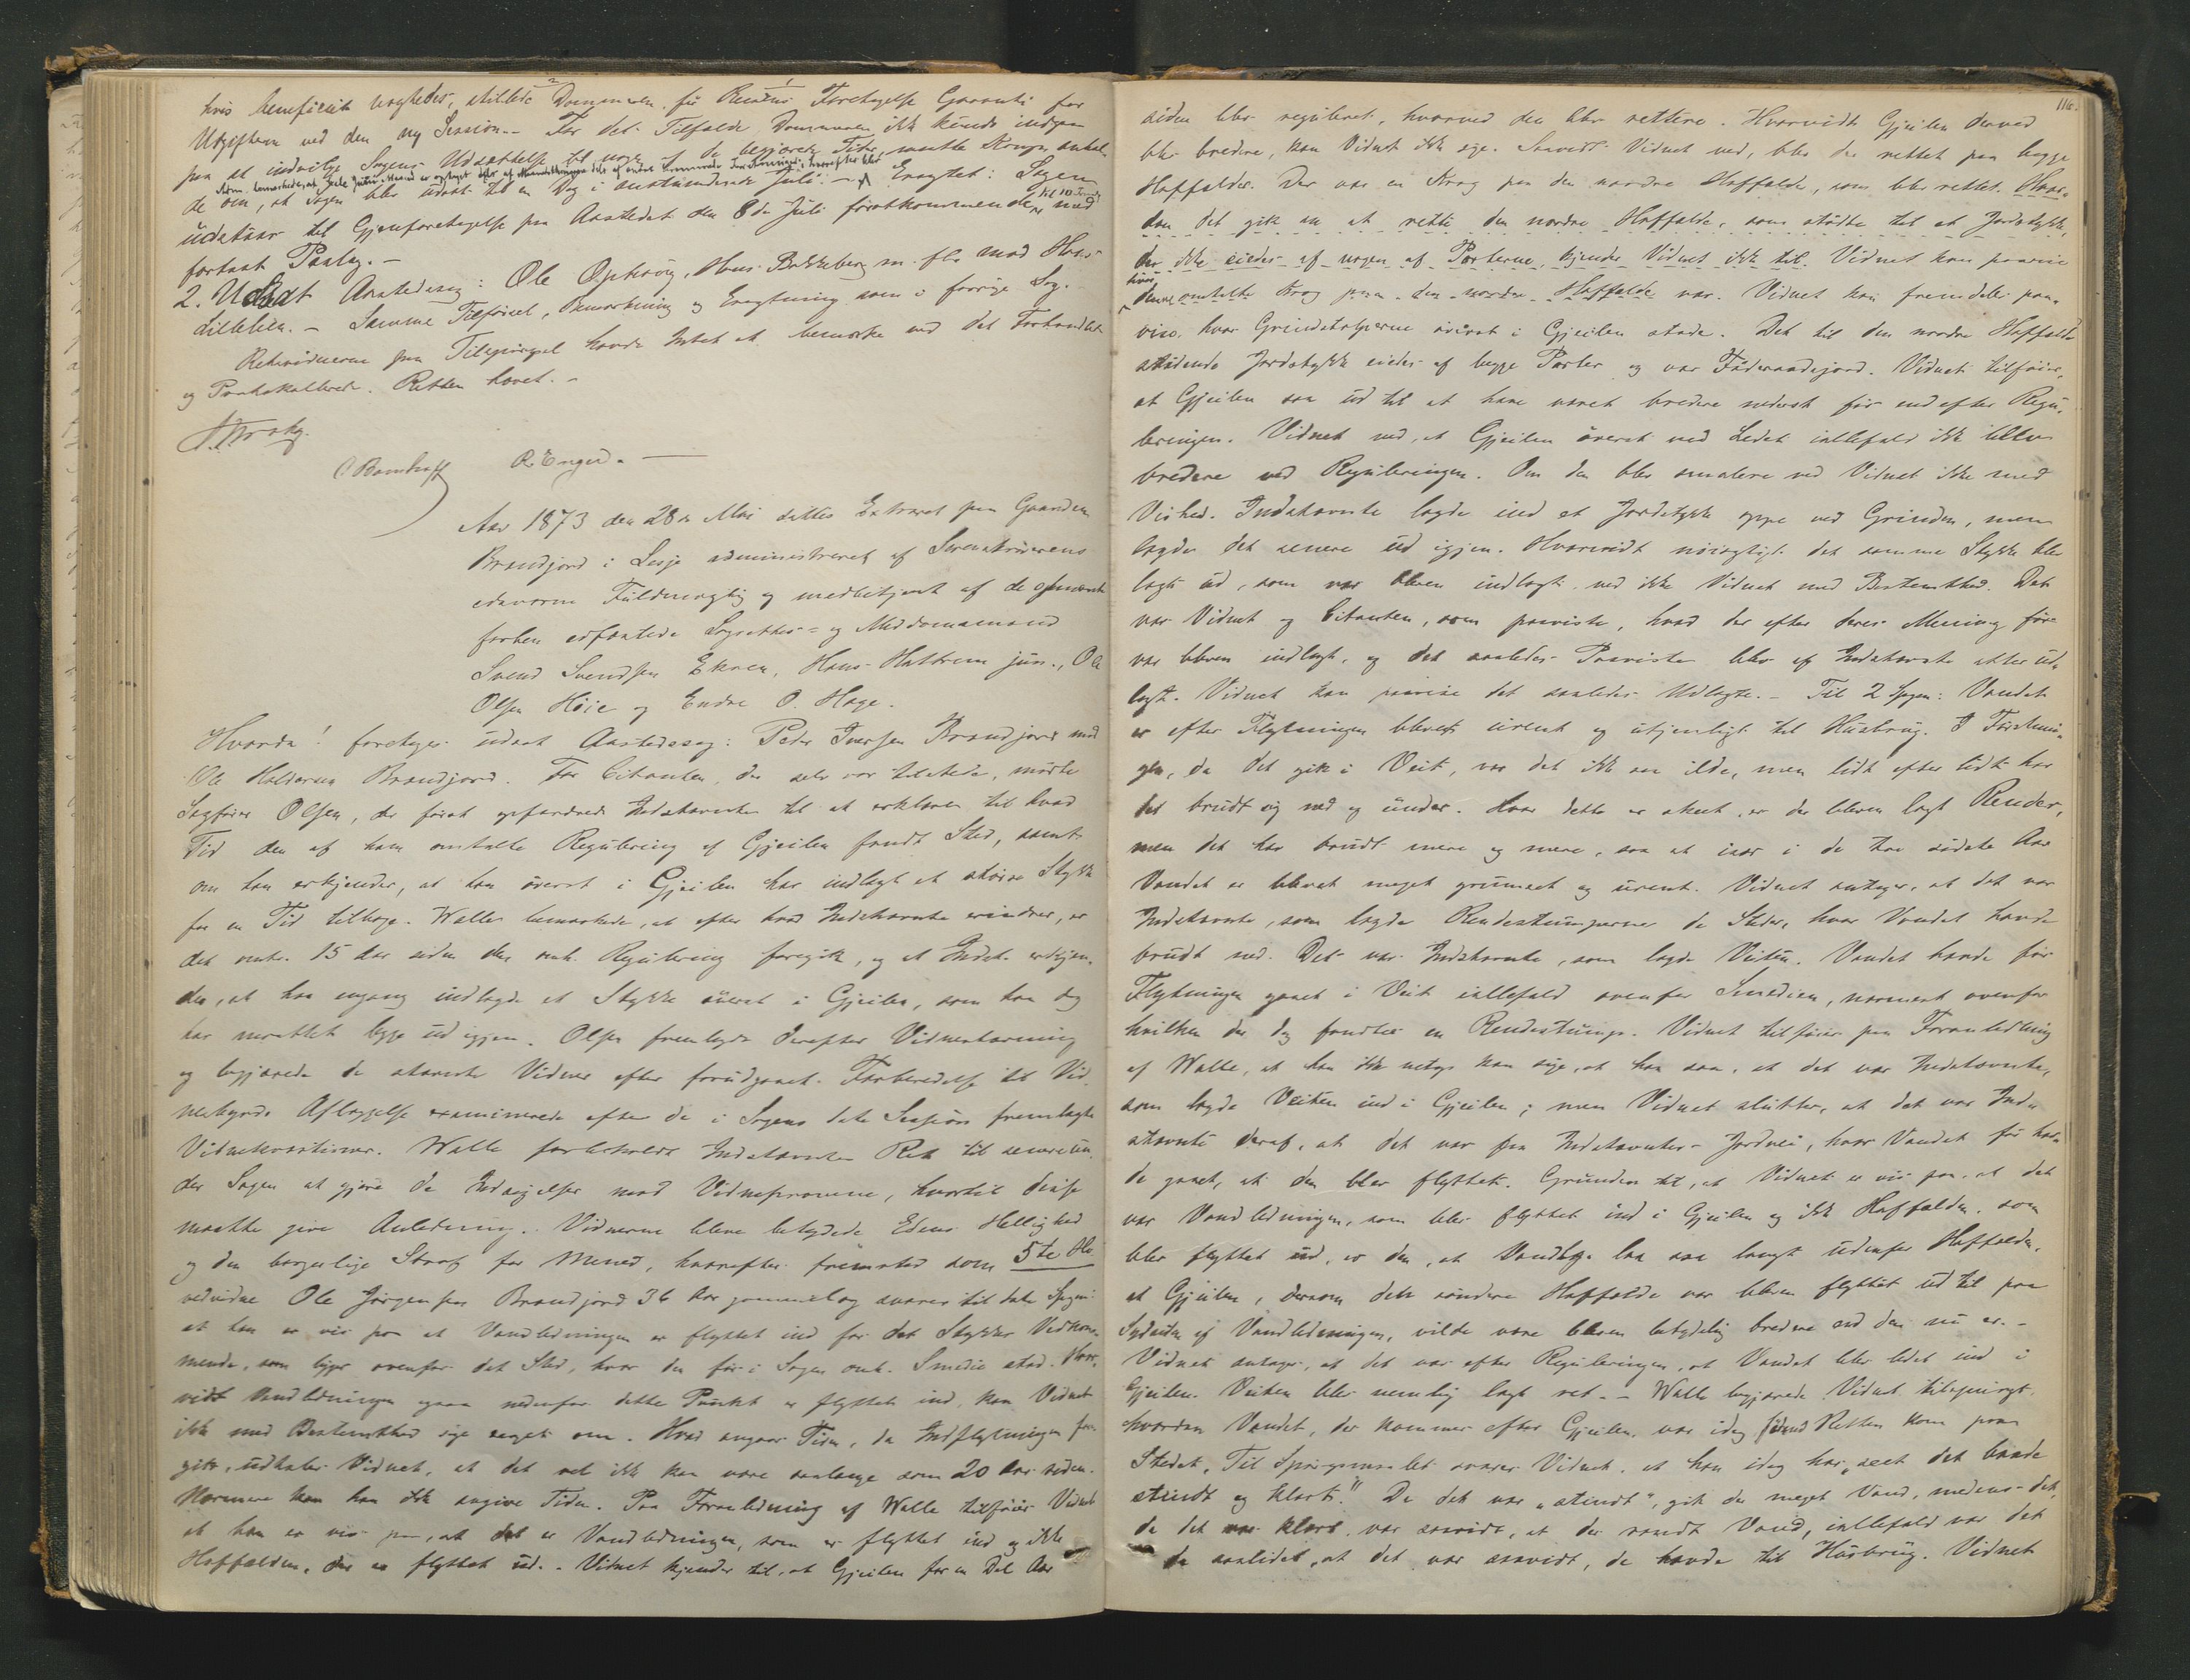 hvis beneficiet negtedes, stillede Dommeren før Reus Foretagelse Garanti for
Utgifterne ved den ny Session. – For det Tilfælde Dommeren ikke kunde indgaa
paa at indvilge Sagens Udsættelse til nogen af de begjærede Tider, maatte Krage anhol-
de om, at Sagen blev udsat til en Dag i anstundende Juli. – Eragtet: Sagen
udstaar til Gjenforetagelse paa Aastedet den 8de Juli førstkommende Kl 10 Form. med
fortsat Paalæg. –
2. Udsat Aastedssag: Ole Ophoug, Hans Bakkeberg m. fl. mod Hans
Lillelien. – Samme Tilførsel, Bemærkning og Eragtning som i forrige Sag.
Retsvidnerne paa Tilspørgsel havde Intet at bemærke ved det Forhandlede
og Protokollerede. Retten hævet. –
R. Enger. –
Aar 1873 den 28de Mai sattes Extraret paa Gaarden
Brandjord i Lesje administreret af Sorenskriverens
edsvorne Fuldmægtig og medbetjent af de opnævnte
forhen edfæstede Lagrettes- og Meddomsmænd
Svend Svendsen Ekren, Hans Hattrem jun., Ole
Olsen Høie og Endre O. Hage.
Hvorda! foretoges udsat Aastedssag: Peder Iversen Brandjord mod
Ole Haldorsen Brandjord. For Citanten, der selv var tilstede, mødte
Sagfører Olsen, der først opfordrede Indstævnte til at erklære til hvad
Tid den af ham omtalte Regulering af Gjeilen fandt Sted, samt
om han erkjender, at han øverst i Gjeilen har indlagt et større Stykke
for en Tid tilbage. Walle bemærkede, at efter hvad Indstævnte erindrer, er
det omtr. 15 Aar siden den omh. Regulering foregik, og at Indst. erkjen-
der, at han engang indlagde et Stykke øverst i Gjeilen, som han dog
har maattet lægge ud igjen. Olsen fremlagde derefter Vidnestævning
og begjærede de stævnte Vidner efter forudgaaet Forberedelse til Vid-
nesbyrds Aflæggelse examinerede efter de i Sagens sidste Session fremlagte
Vidnekvæstioner. Walle forbeholdt Indstævnte Ret til senere un-
der Sagen at gjøre de Indsigelser mod Vidneprovene, hvortil disse
maatte give Anledning. Vidnerne bleve betydede Edens Hellighed
og den borgerlige Straf for Mened, hvorefter fremstod som 5te Ho-
vedvidne Ole Jørgensen Brandjord 36 Aar gammel og svarer til 1ste Spgm:
at han er vis paa at Vandledningen er flyttet ind for det Stykkes Vedkom-
mende, som ligger ovenfor det Sted, hvor den før i Sagen omh. Smedie stod. Hvor-
vidt Vandledningen ogsaa nedenfor dette Punkt er flyttet ind, kan Vidnet
ikke med Bestemthed sige noget om. Hvad angaar Tiden, da Indflytningen fore-
gik, udtaler Vidnet, at det vel ikke kan være saalænge som 20 Aar siden.
Nærmere kan han ikke angive Tiden. Paa Foranledning af Walle tilføier Vidnet
at han er vis paa, at det er Vandledningen, som er flyttet ind og ikke
Haffælden, der er flyttet ud. – Vidnet kjender til, at Gjeilen for en Del Aar
116.
siden blev reguleret, hvorved den blev rettere. Hvorvidt Gjeilen derved
blev bredere, kan Vidnet ikke sige. Saavidt Vidnet ved, blev der rettet paa begge
Haffælder. Der var en Krog paa den nordre Haffælde, som blev rettet. Hvor-
dan det gik an at rette den nordre Haffælde, som stødte til et Jordstykke,
der ikke eiedes af nogen af Parterne, kjender Vidnet ikke til. Vidnet kan paavise
hvor denne omtalte Krog paa den nordre Haffælde var. Vidnet kan fremdeles paa-
vise, hvor Grindstolperne øverst i Gjeilen stode. Det til den nordre Haffælde
stødende Jordstykke eiedes af begge Parter og var Føderaadsjord. Vidnet tilføier,
at Gjeilen saa ud til at have været bredere nederst før end efter Regu-
leringen. Vidnet ved, at Gjeilen øverst ved Ledet iallefald ikke blev
bredere ved Reguleringen. Om den blev smalere ved Vidnet ikke med
Vished. Indstævnte lagde ind et Jordstykke oppe ved Grinden, men
lagde det senere ud igjen. Hvorvidt nøiagtigt det samme Stykke blev
lagt ud, som var bleven indlagt, ved ikke Vidnet med Bestemthed. Det
var Vidnet og Citanten, som paaviste, hvad der efter deres Mening før
var bleven indlagt, og det saaledes Paaviste blev af Indstævnte atter ud-
lagt. Vidnet kan paavise det saaledes Udlagte. – Til 2 Spgm: Vandet
er efter Flytningen blevet urent og utjenligt til Husbrug. I Førstnin-
gen, da det gik i Veit, var det ikke saa ilde, men lidt efter lidt har
det brudt sig ned og under. Hvor dette er skeet, er der bleven lagt Render,
men det har brudt mere og mere, saa at især i de tre sidste Aar
Vandet er blevet meget grumset og urent. Vidnet antager, at det var
Indstævnte, som lagde Rendestumperne de Steder, hvor Vandet havde
brudt ned. Det var Indstævnte, som lagde Veiten. Vandet havde før
Flytningen gaaet i Veit iallefald ovenfor Smedien, nærmest ovenfor
hvilken der dog fandtes en Rendestump. Vidnet tilføier paa Foranledning
af Walle, at han ikke netop kan sige, at han saa, at det var Indstævnte,
som lagde Veiten ind i Gjeilen; men Vidnet slutter, at det var Ind-
stævnte deraf, at det var fra Indstævntes Jordvei, hvor Vandet før hav-
de gaaet, at den blev flyttet. Grunden til, at Vidnet er vis paa, at det
var Vandledningen, som blev flyttet ind i Gjeilen og ikke Haffælden, som
blev flyttet ud, er den, at Vandløge laa saa langt udenfor Haffælden,
at Gjeilen, dersom den søndre Haffælde var bleven flyttet ud til paa
Sydsiden af Vandledningen, vilde være bleven betydelig bredere end den nu er. –
Vidnet antager, at det var efter Reguleringen, at Vandet blev ledet ind i
Gjeilen. Veiten blev nemlig lagt ret. – Walle begjærede Vidnet tilspurgt,
hvordan Vandet, der kommer efter Gjeilen, var idag førend Retten kom paa
Stedet. Til Spørgsmaalet svarer Vidnet, at han idag har „seet det baade
stindt og klart." Da det var „stindt", gik der meget Vand, medens det,
da det var klart, var saavidt, at der randt Vand, iallefald var det
da saalidet, at det var saavidt, de havde til Husbrug. Vidnet